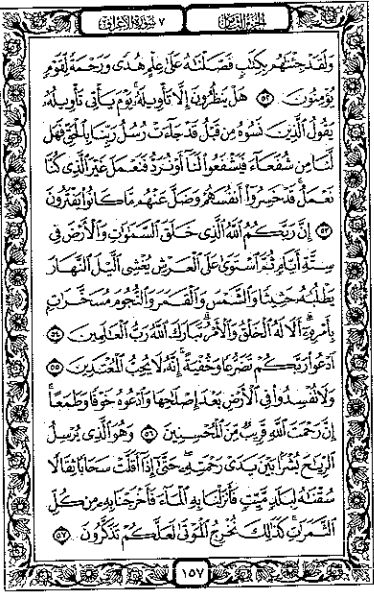 الجزء الثامن
٧ سورة الأعراف
وَلَقَدْ جِئْنَٰهُم بِكِتَٰبٍ فَصَّلْنَٰهُ عَلَىٰ عِلْمٍ هُدًى وَرَحْمَةً لِّقَوْمٍ
يُؤْمِنُونَ ٥٢ هَلْ يَنظُرُونَ إِلَّا تَأْوِيلَهُۥ يَوْمَ يَأْتِى تَأْوِيلُهُۥ
يَقُولُ ٱلَّذِينَ نَسُوهُ مِن قَبْلُ قَدْ جَآءَتْ رُسُلُ رَبِّنَا بِٱلْحَقِّ فَهَل
لَّنَا مِن شُفَعَآءَ فَيَشْفَعُوا۟ لَنَآ أَوْ نُرَدُّ فَنَعْمَلَ غَيْرَ ٱلَّذِى كُنَّا
نَعْمَلُ قَدْ خَسِرُوٓا۟ أَنفُسَهُمْ وَضَلَّ عَنْهُم مَّا كَانُوا۟ يَفْتَرُونَ
٥٣ إِنَّ رَبَّكُمُ ٱللَّهُ ٱلَّذِى خَلَقَ ٱلسَّمَٰوَٰتِ وَٱلْأَرْضَ فِى
سِتَّةِ أَيَّامٍ ثُمَّ ٱسْتَوَىٰ عَلَى ٱلْعَرْشِ يُغْشِى ٱلَّيْلَ ٱلنَّهَارَ
يَطْلُبُهُۥ حَثِيثًا وَٱلشَّمْسَ وَٱلْقَمَرَ وَٱلنُّجُومَ مُسَخَّرَٰتٍۭ
بِأَمْرِهِۦٓ أَلَا لَهُ ٱلْخَلْقُ وَٱلْأَمْرُ تَبَارَكَ ٱللَّهُ رَبُّ ٱلْعَٰلَمِينَ ٥٤
ٱدْعُوا۟ رَبَّكُمْ تَضَرُّعًا وَخُفْيَةً إِنَّهُۥ لَا يُحِبُّ ٱلْمُعْتَدِينَ ٥٥
وَلَا تُفْسِدُوا۟ فِى ٱلْأَرْضِ بَعْدَ إِصْلَٰحِهَا وَٱدْعُوهُ خَوْفًا وَطَمَعًا
إِنَّ رَحْمَتَ ٱللَّهِ قَرِيبٌ مِّنَ ٱلْمُحْسِنِينَ ٥٦ وَهُوَ ٱلَّذِى يُرْسِلُ
ٱلرِّيَٰحَ بُشْرًۢا بَيْنَ يَدَىْ رَحْمَتِهِۦ حَتَّىٰٓ إِذَآ أَقَلَّتْ سَحَابًا ثِقَالًا
سُقْنَٰهُ لِبَلَدٍ مَّيِّتٍ فَأَنزَلْنَا بِهِ ٱلْمَآءَ فَأَخْرَجْنَا بِهِۦ مِن كُلِّ
ٱلثَّمَرَٰتِ كَذَٰلِكَ نُخْرِجُ ٱلْمَوْتَىٰ لَعَلَّكُمْ تَذَكَّرُونَ ٥٧
١٥٧